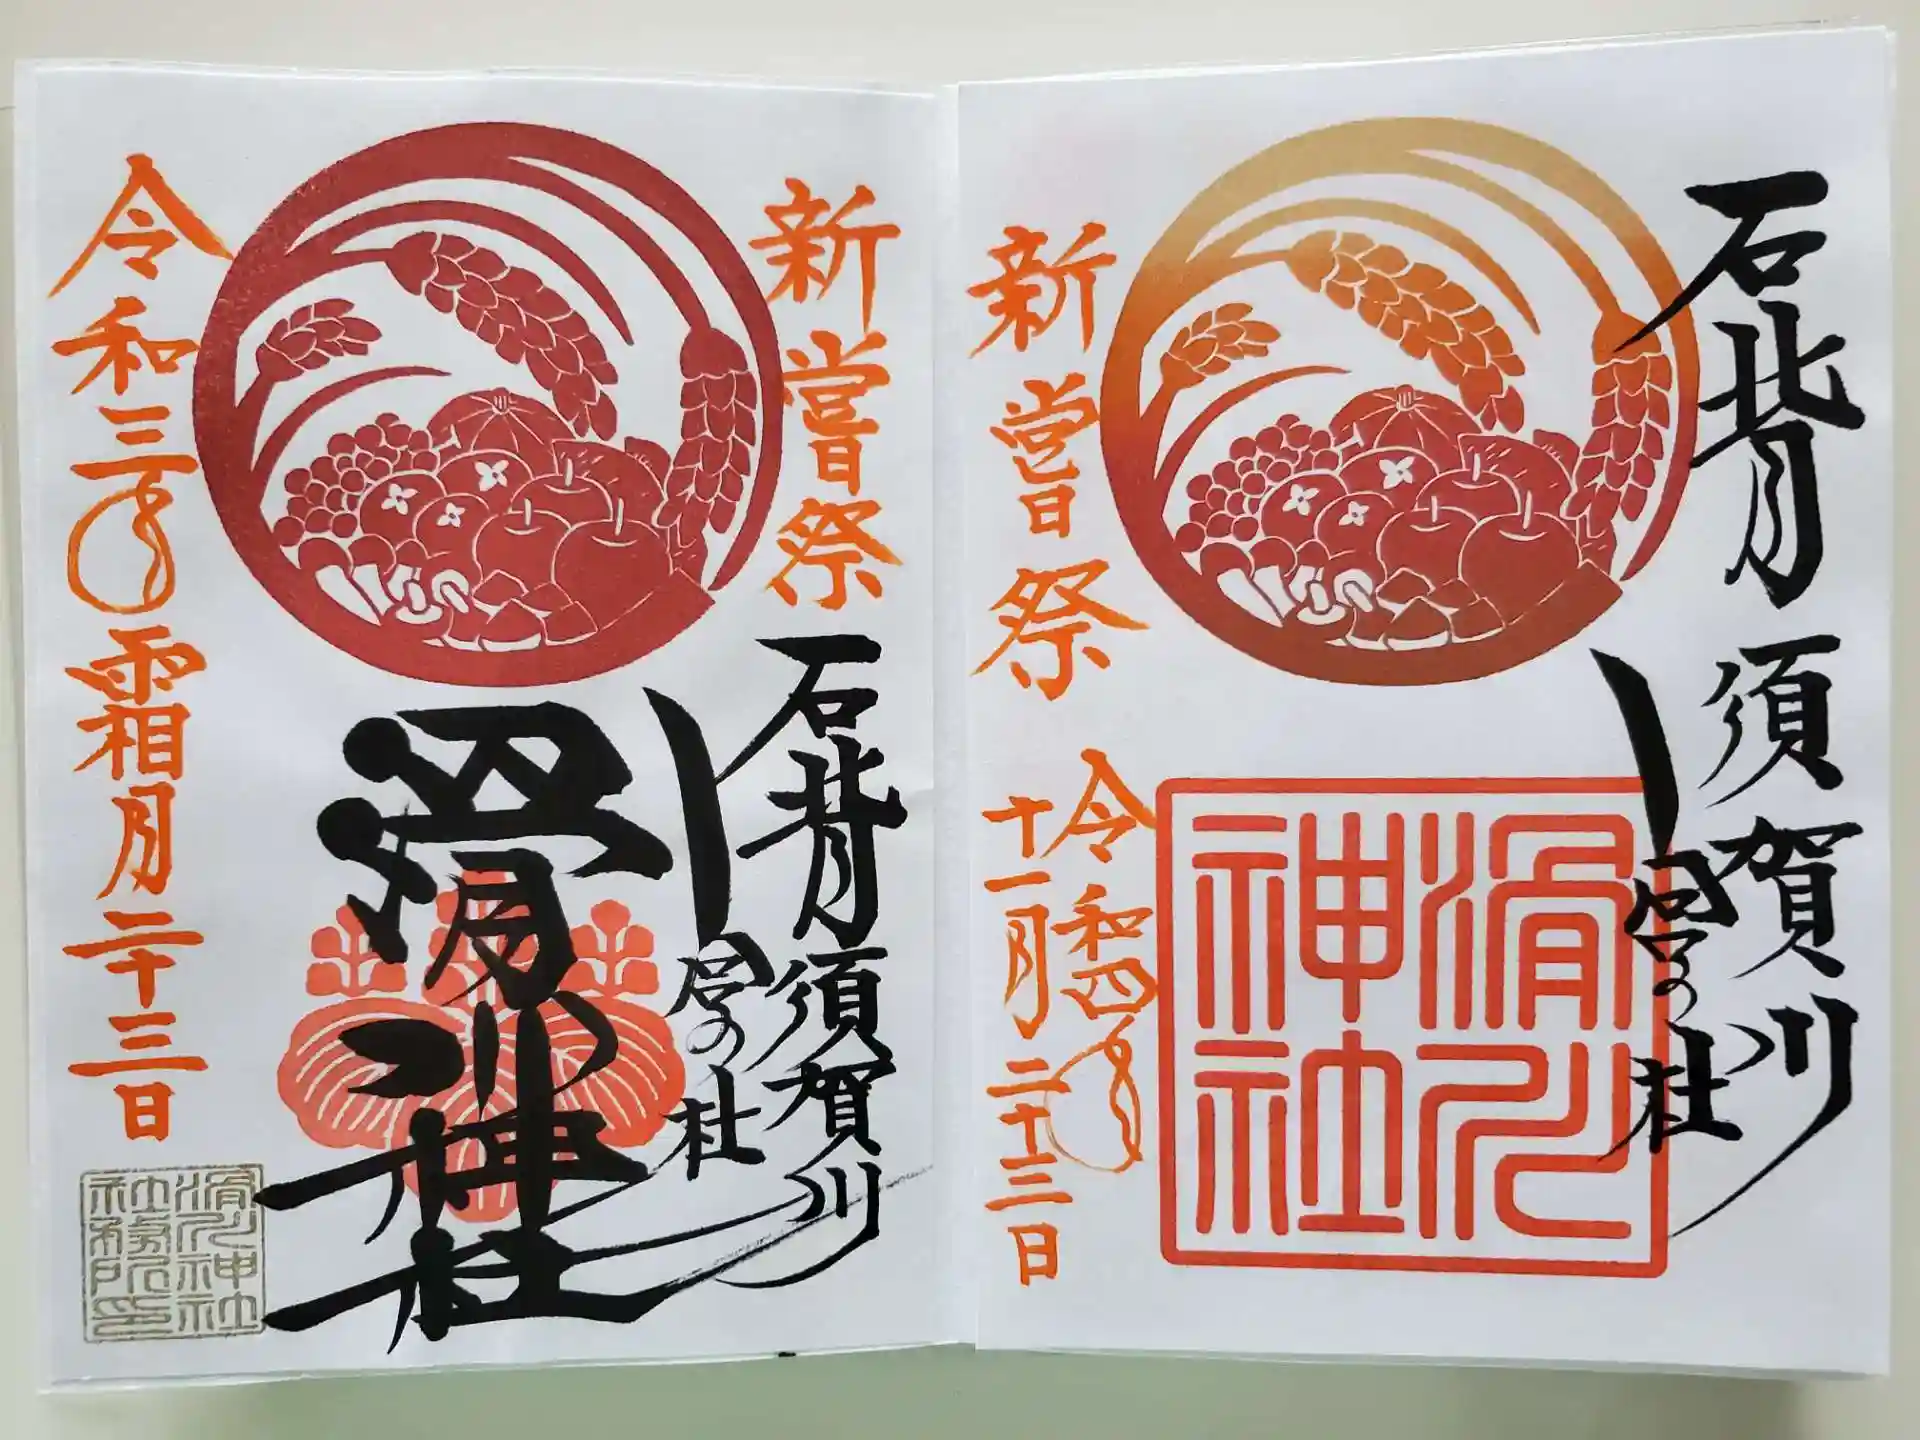 石背 須賀川
宮の杜
滑川
神社
新嘗祭
令和四年
十一月二十三日
新嘗祭
石背 須賀川
宮の杜
滑川神社
令和三年霜月二十三日
滑川神社
社務所印